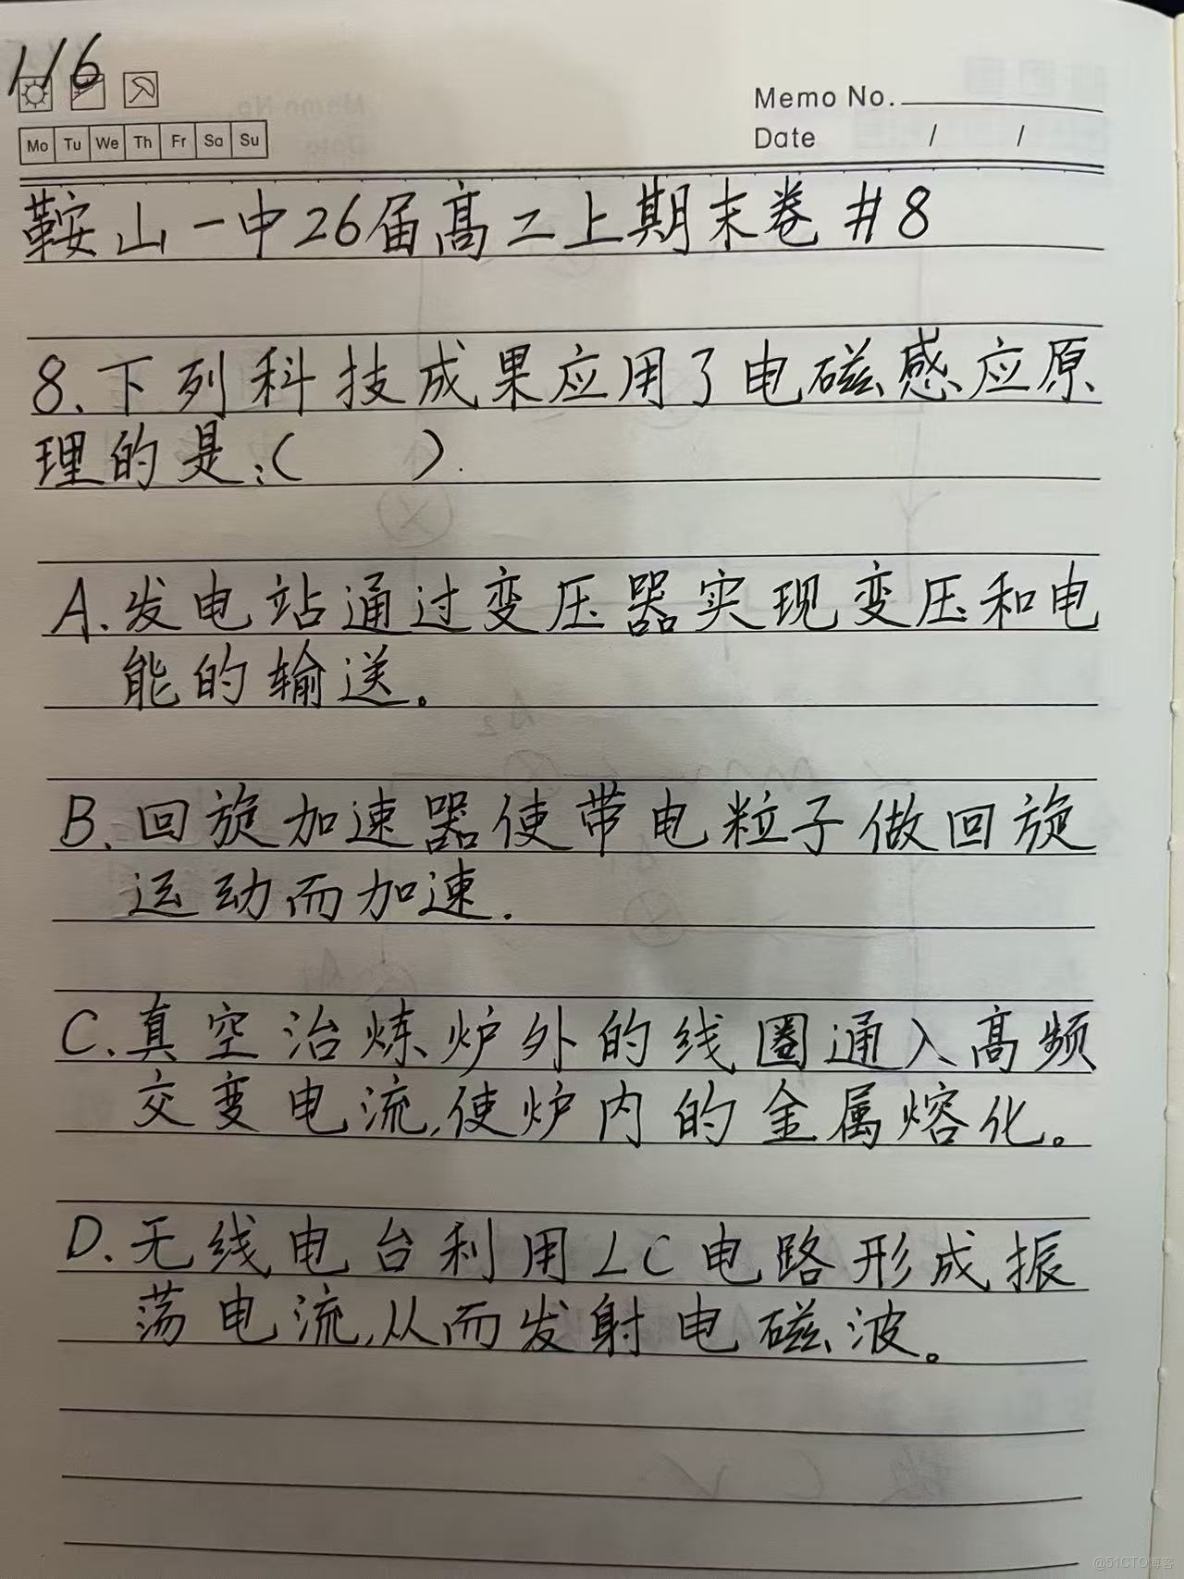 1/6
Memo No.
Mo Tu We Th Fr Sa Su
Date / /
鞍山一中26届高二上期末卷#8
8.下列科技成果应用了电磁感应原
理的是:( ).
A.发电站通过变压器实现变压和电
能的输送。
B.回旋加速器使带电粒子做回旋
运动而加速.
C.真空冶炼炉外的线圈通入高频
交变电流,使炉内的金属熔化。
D.无线电台利用LC电路形成振
荡电流,从而发射电磁波。
@51CTO博客